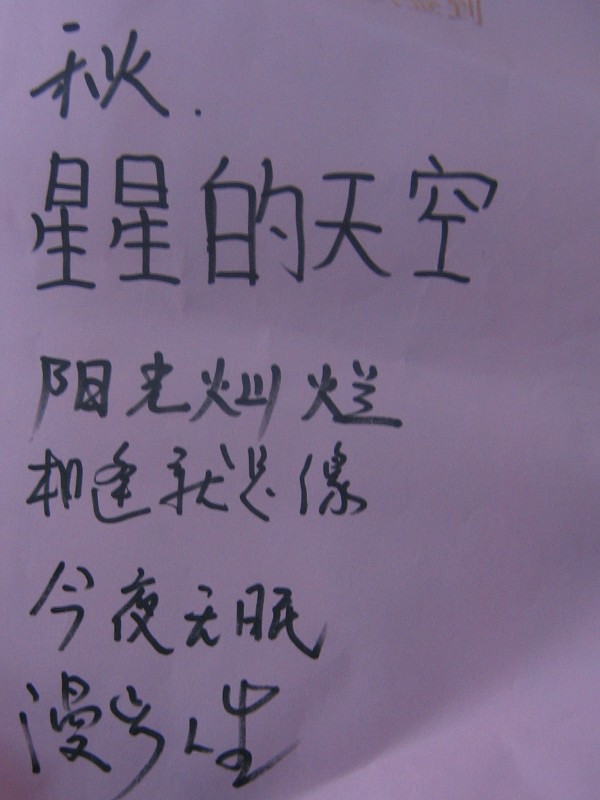 秋.
星星的天空
阳光灿烂
相逢就是缘
今夜无眠
漫步人生